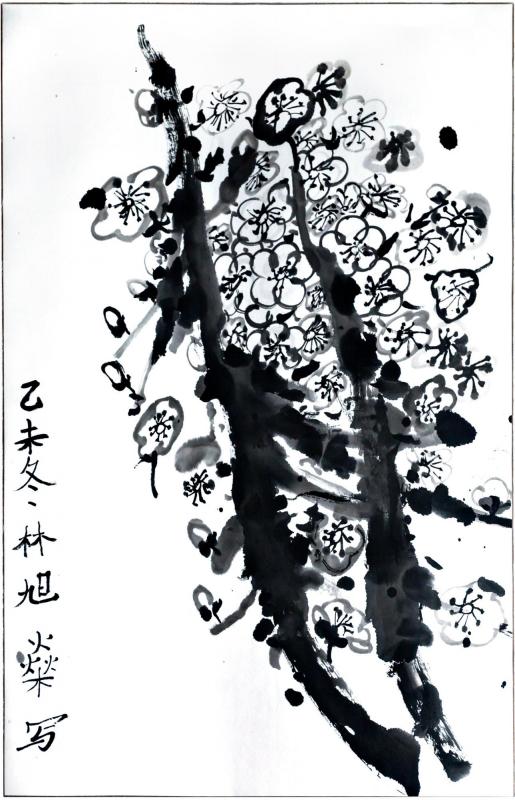 乙未冬林旭燊写